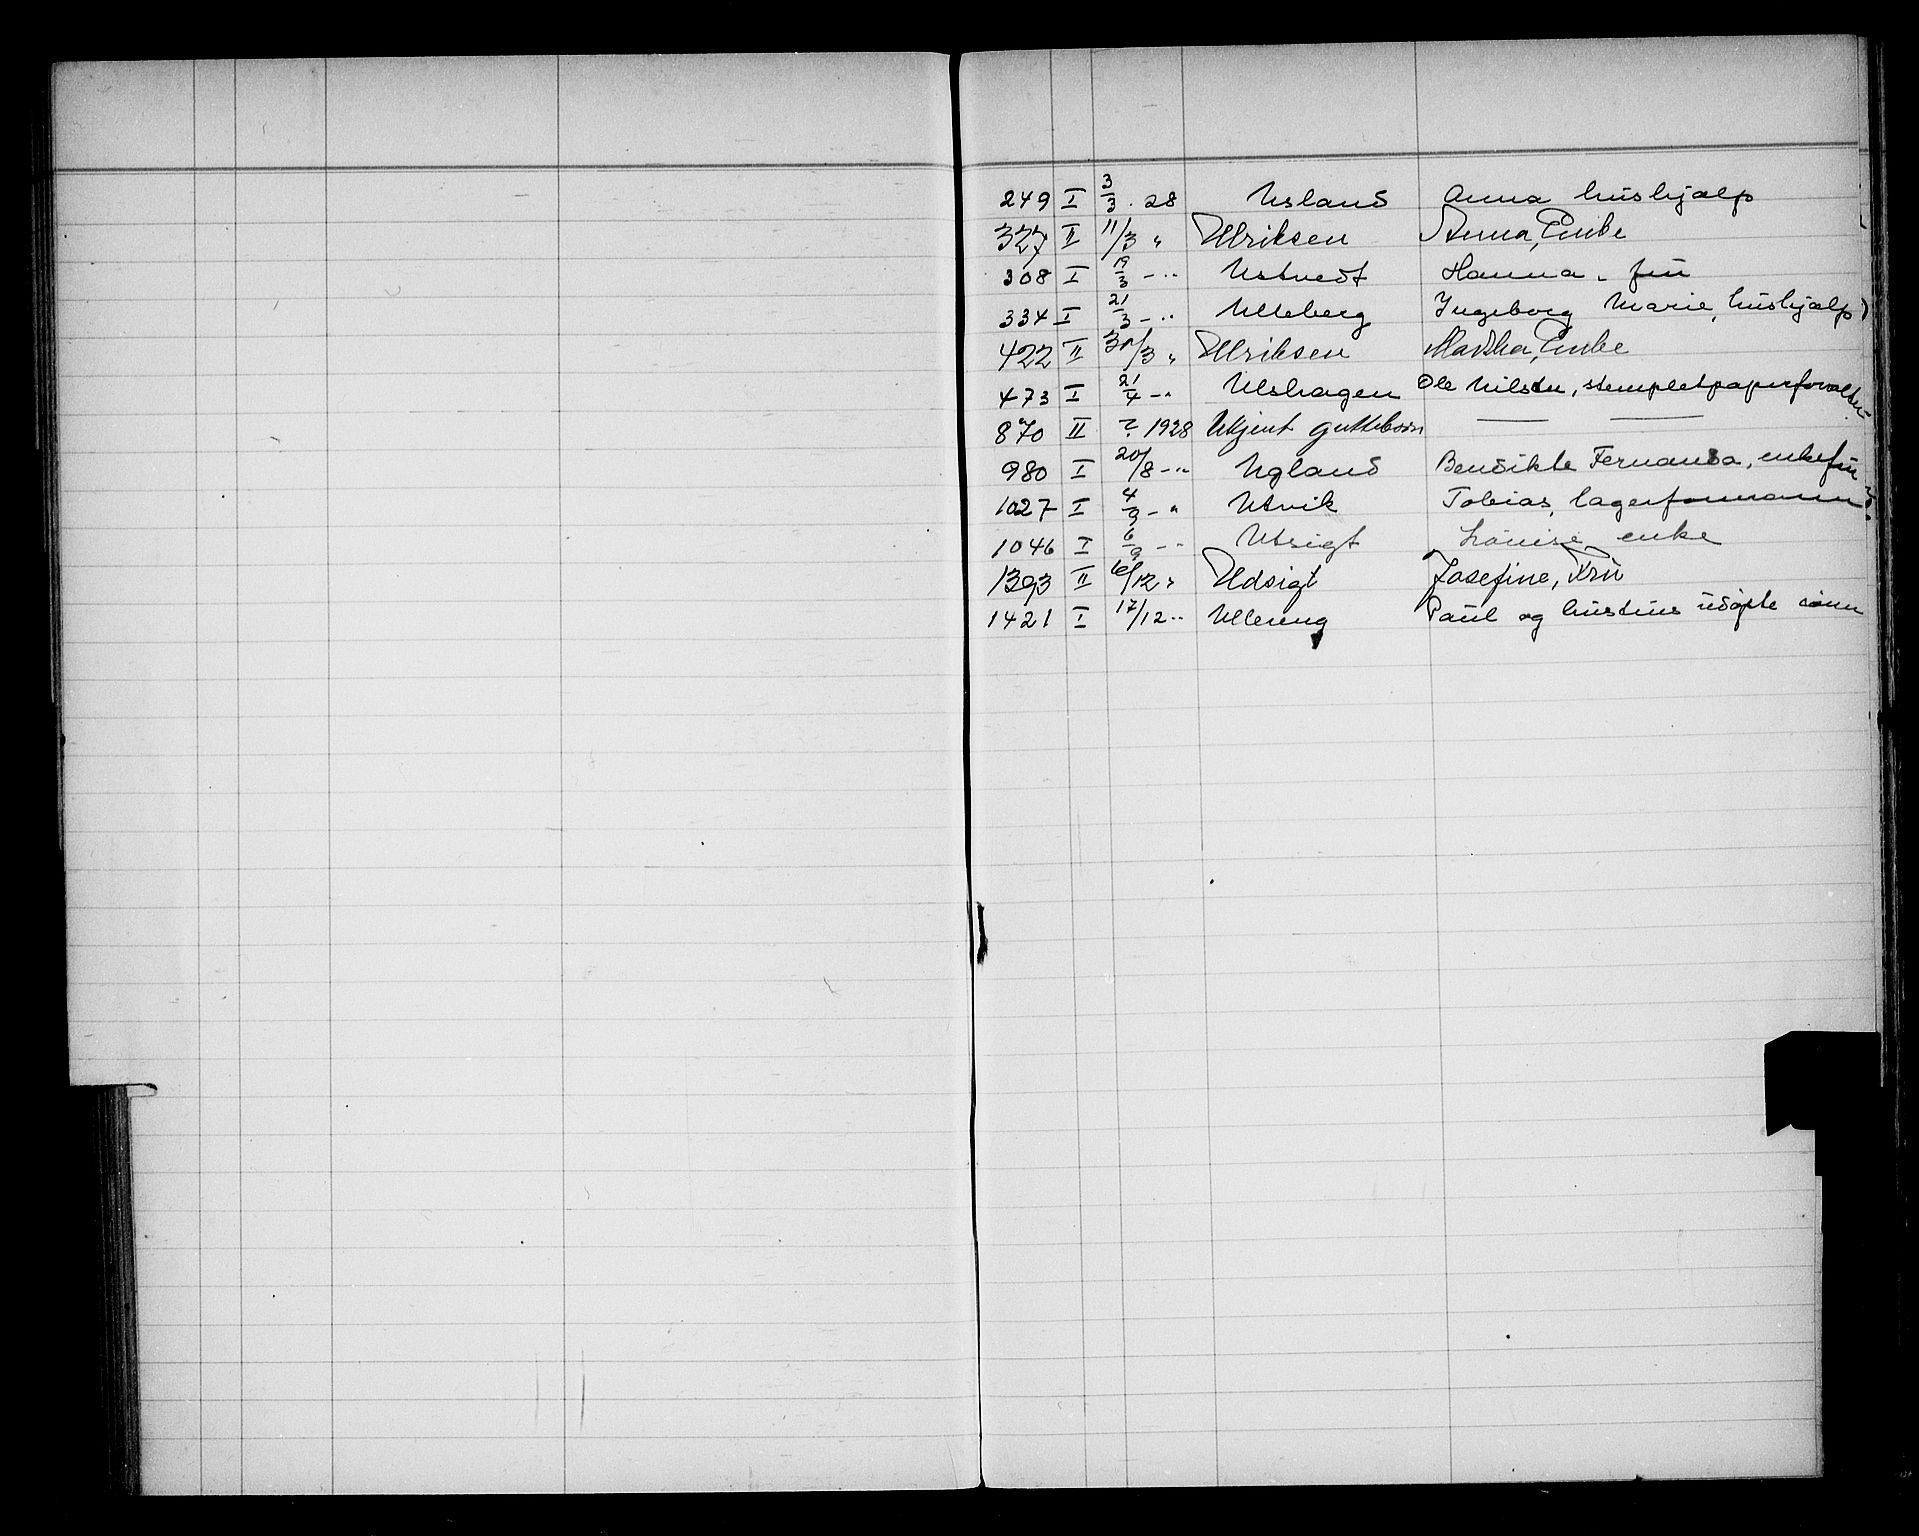 249 I 3/3 . 28 Usland Anna hushjælp
327 II 11/3 " Ulriksen Anna, Enke
308 I 19/3 - .. Ustvedt Hanna . frú
334 I 21/3 - .. Ulleberg Ingeborg Marie, hushjælp
422 II 30/3 " Ulriksen Martha, Enke
473 I 21/4 - " Ulshagen Ole Nilsen, stempletpapirforvalter
870 II ? 1928 Ukjent guttebarn — —
980 I 20/8 - .. Ugland Bendikte Fernanda, enkefrú
1027 I 4/9 - " Utvik Tobias, lagerformann
1046 I 6/9 - - Utsigt Lovise enke
1393 II 10/12 " Udsigt Josefine, Frú
1421 I 17/12 .. Ullereng Paul og hustrus udøpte sønn